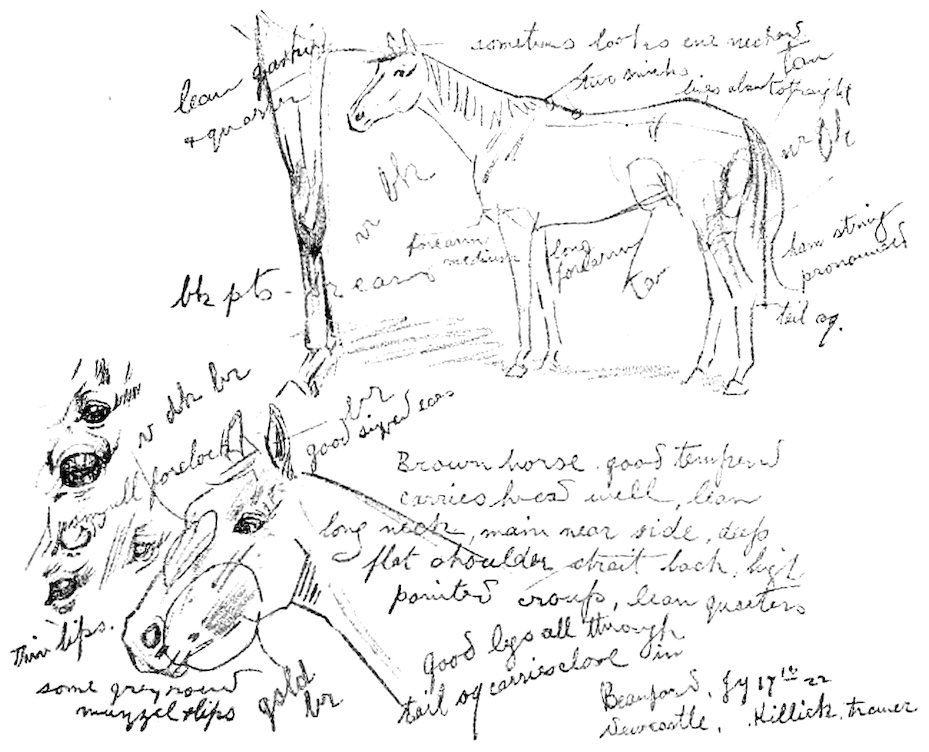 sometimes looks ewe necked
lean gaskin
& quarter
two swirls
tan
lies about straight
vr bk
vr bk
forearm
medium
long
forearm
tan
ham string
pronounced
tail og.
bk pts - cream
v dk br
br
good sized ears
small forelock
Brown horse. good tempered
carries head well, lean
long neck, main near side, deep
flat shoulder strait back, high
pointed croup, lean quarters
good legs all through
tail og carries close in
thin lips.
some grey round
muzzel & lips
gold
br
Beauford, Jy 17th 22
Newcastle, Killick, trainer